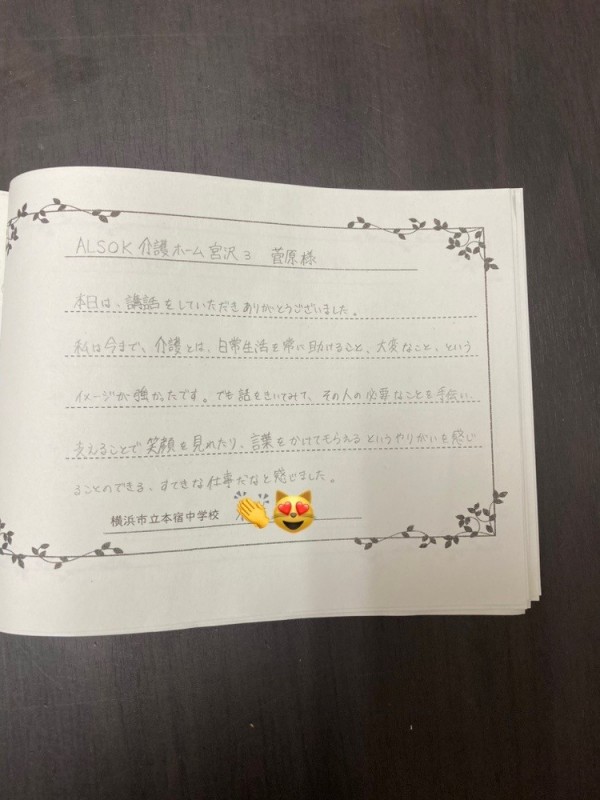 ALSOK 介護ホーム宮沢3 菅原様
本日は、講話をしていただきありがとうございました。
私は今まで、介護とは、日常生活を常に助けること、大変なこと、という
イメージが強かったです。でも話をきいてみて、その人の必要なことを手伝い、
支えることで笑顔を見れたり、言葉をかけてもらえるというやりがいを感じ
ることのできる、すてきな仕事だなと感じました。
横浜市立本宿中学校